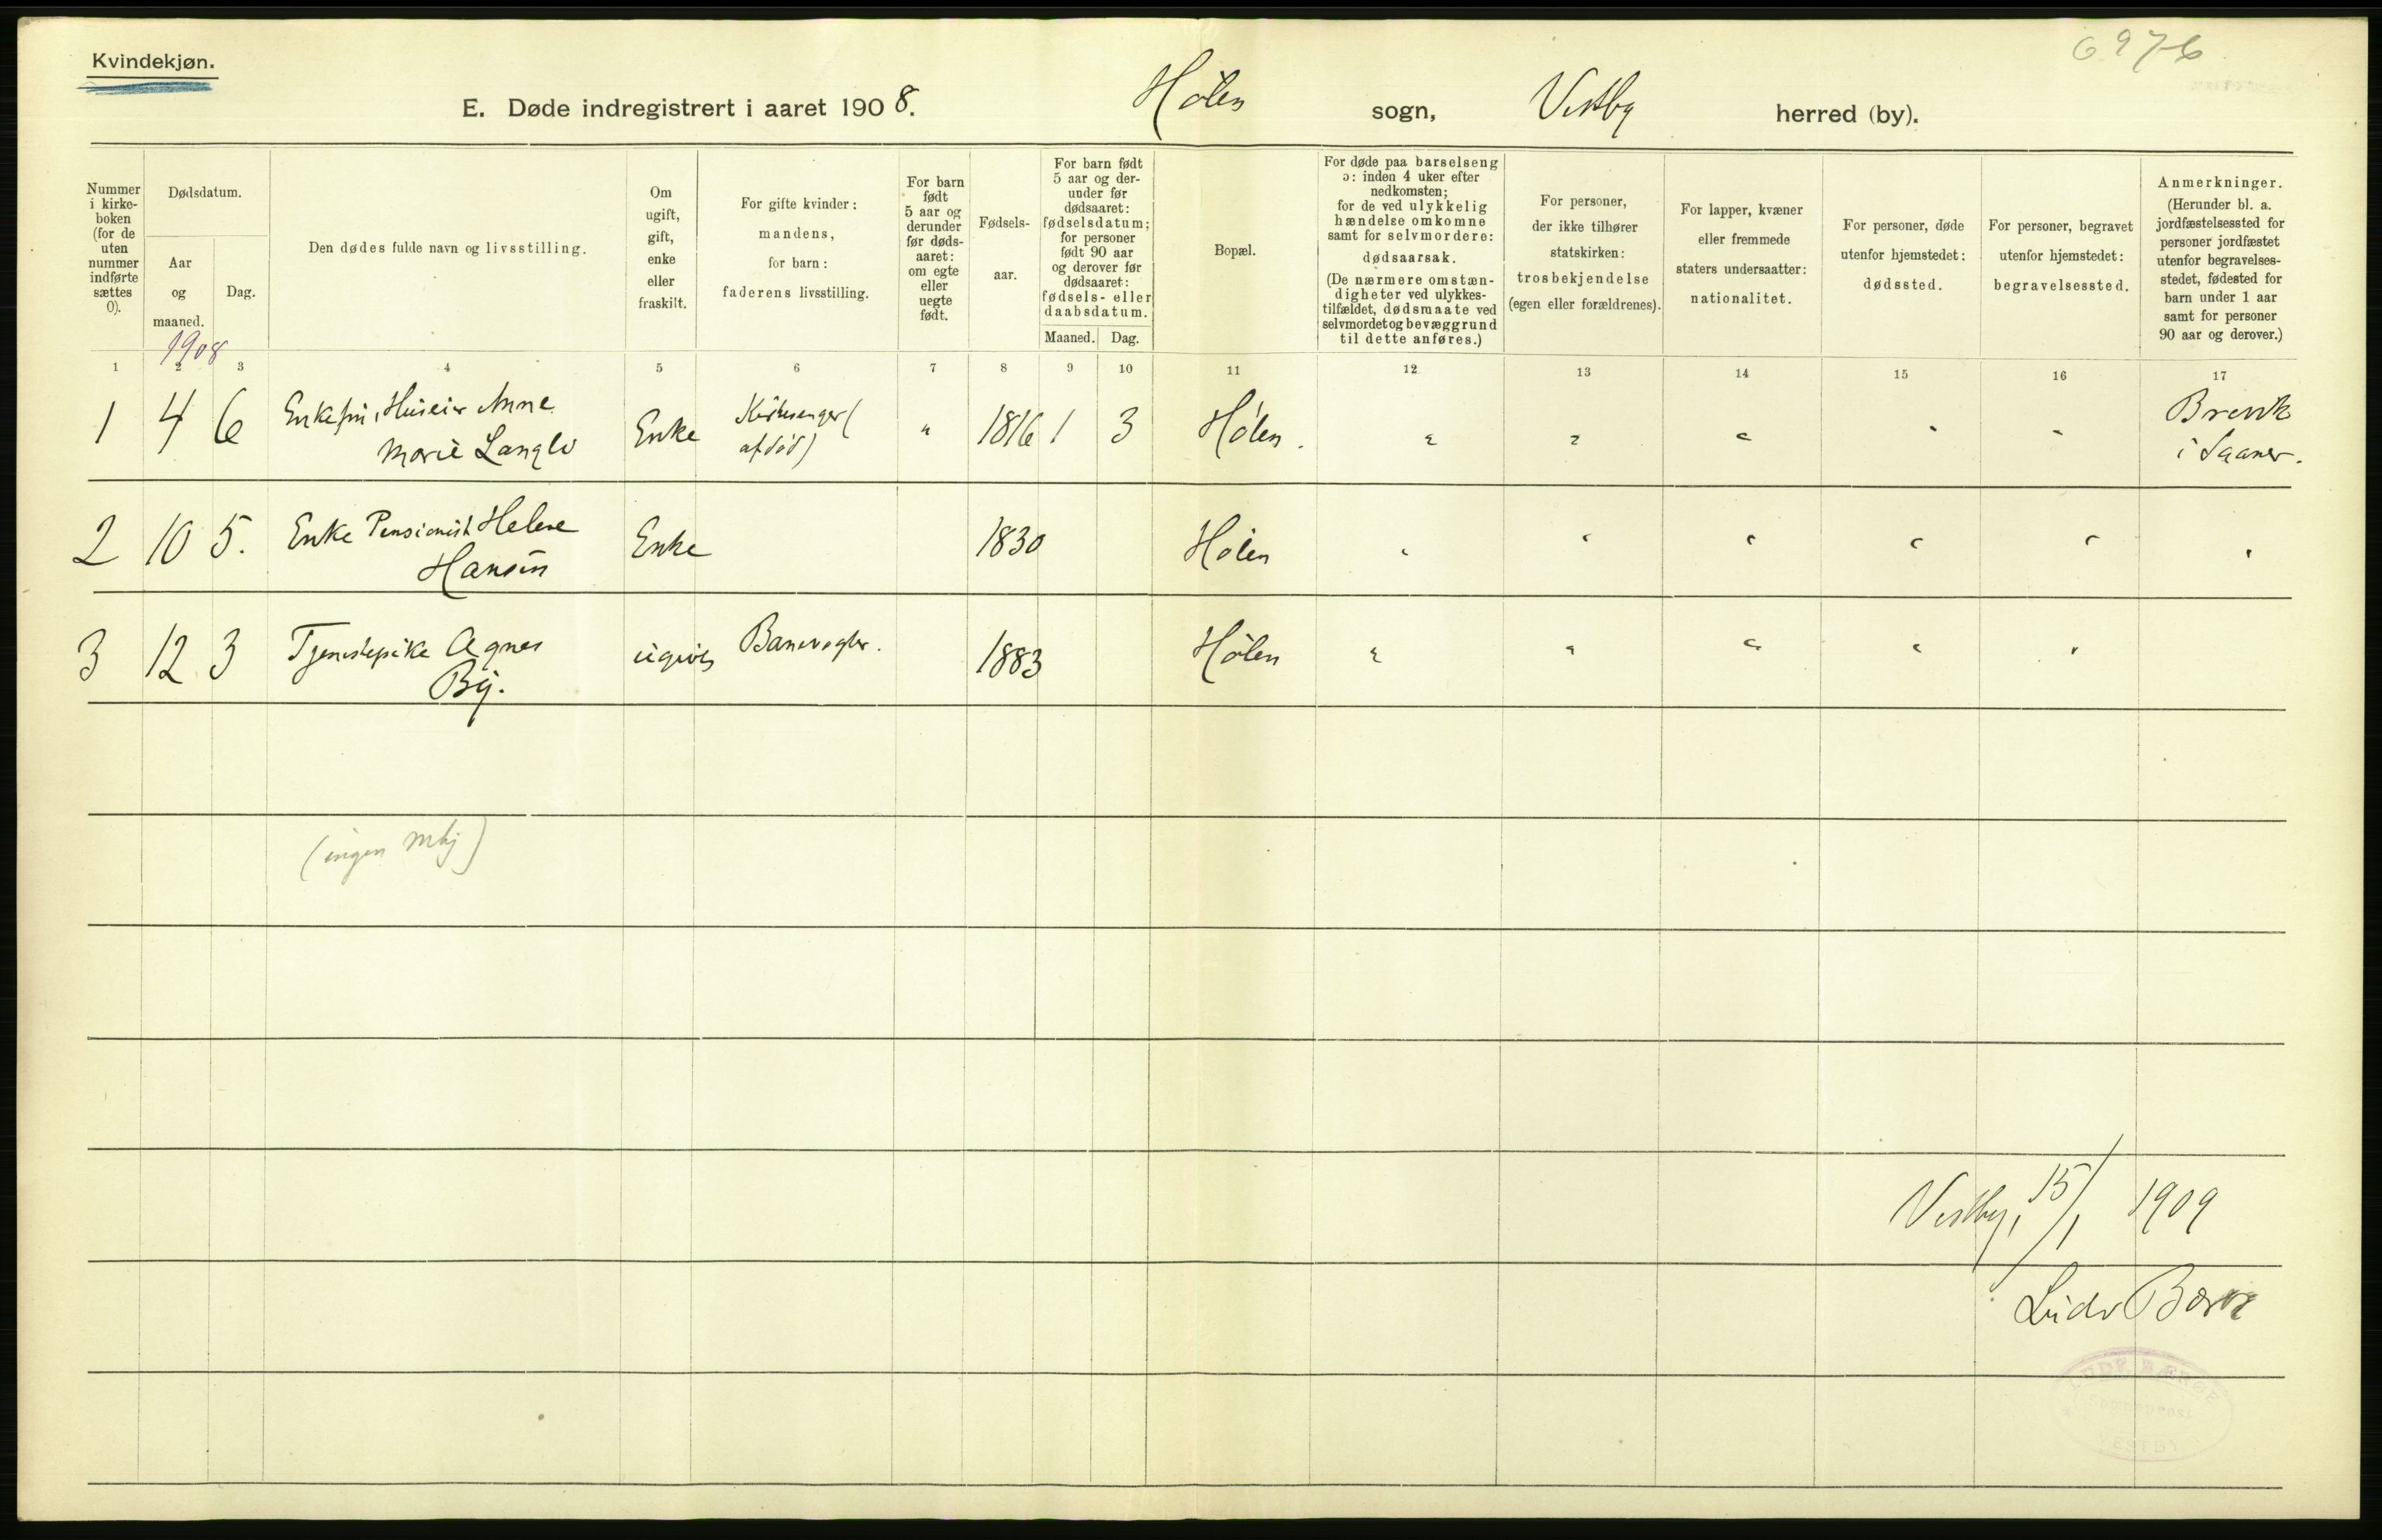 6976
Kvindekjøn.
E. Døde indregistrert i aaret 1908. Hølen sogn, Vestby herred (by).
Nummer
i kirke-
boken
(for de
uten
nummer
indførte
sættes
0).
Dødsdatum.
Aar
og
maaned.
Dag.
Den dødes fulde navn og livsstilling.
Om
ugift,
gift,
enke
eller
fraskilt.
For gifte kvinder:
mandens,
for barn:
faderens livsstilling.
For barn
født
5 aar og
derunder
før døds-
aaret:
om egte
eller
uegte
født.
Fødsels-
aar.
For barn født
5 aar og der-
under før
dødsaaret:
fødselsdatum;
for personer
født 90 aar
og derover før
dødsaaret:
fødsels- eller
daabsdatum.
Maaned. Dag.
Bopæl.
For døde paa barselseng
ɔ: inden 4 uker efter
nedkomsten;
for de ved ulykkelig
hændelse omkomne
samt for selvmordere:
dødsaarsak.
(De nærmere omstæn-
digheter ved ulykkes-
tilfældet, dødsmaate ved
selvmordet og bevæggrund
til dette anføres.)
For personer,
der ikke tilhører
statskirken:
trosbekjendelse
(egen eller forældrenes).
For lapper, kvæner
eller fremmede
staters undersaatter:
nationalitet.
For personer, døde
utenfor hjemstedet:
dødssted.
For personer, begravet
utenfor hjemstedet:
begravelsessted.
Anmerkninger.
(Herunder bl. a.
jordfæstelsessted for
personer jordfæstet
utenfor begravelses-
stedet, fødested for
barn under 1 aar
samt for personer
90 aar og derover.)
1908
1 2 3 4 5 6 7 8 9 10 11 12 13 14 15 16 17
1 4 6 Enkefru, Huseier Anne Marie Langlo Enke Kirkesanger (afdød) " 1816 1 3 Hølen. " " " " " Brevik i Saaner.
2 10 5. Enke Pensionist Helene Hansen Enke 1830 Hølen " " " " " "
3 12 3 Tjenestepike Agnes By. ugivt Banevogter. 1883 Hølen " " " " "
(ingen mkj)
Vestby, 15/1 1909
Ludv Børve
VESTBY